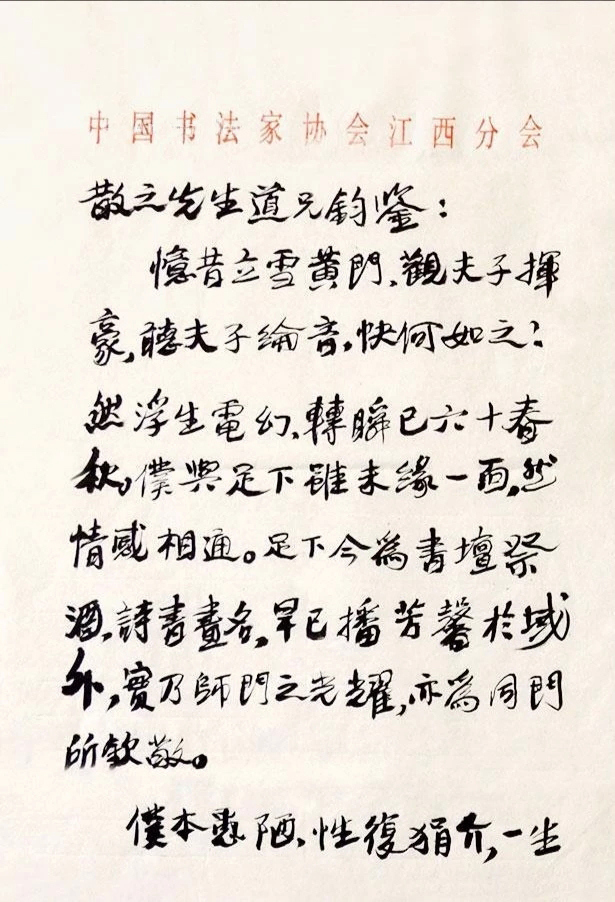 中国书法家协会江西分会
散之先生道兄鈞鑒：
憶昔立雪黃門、觀夫子揮
豪，聽夫子綸音，快何如之！
然浮生電幻、轉瞬已六十春
秋。僕與足下雖未緣一面，然
情感相通。足下今為書壇祭
酒，詩書畫名，早已播芳馨於域
外，實乃師門之光耀，亦為同門
所欽敬。
僕本愚陋、性復狷介，一生